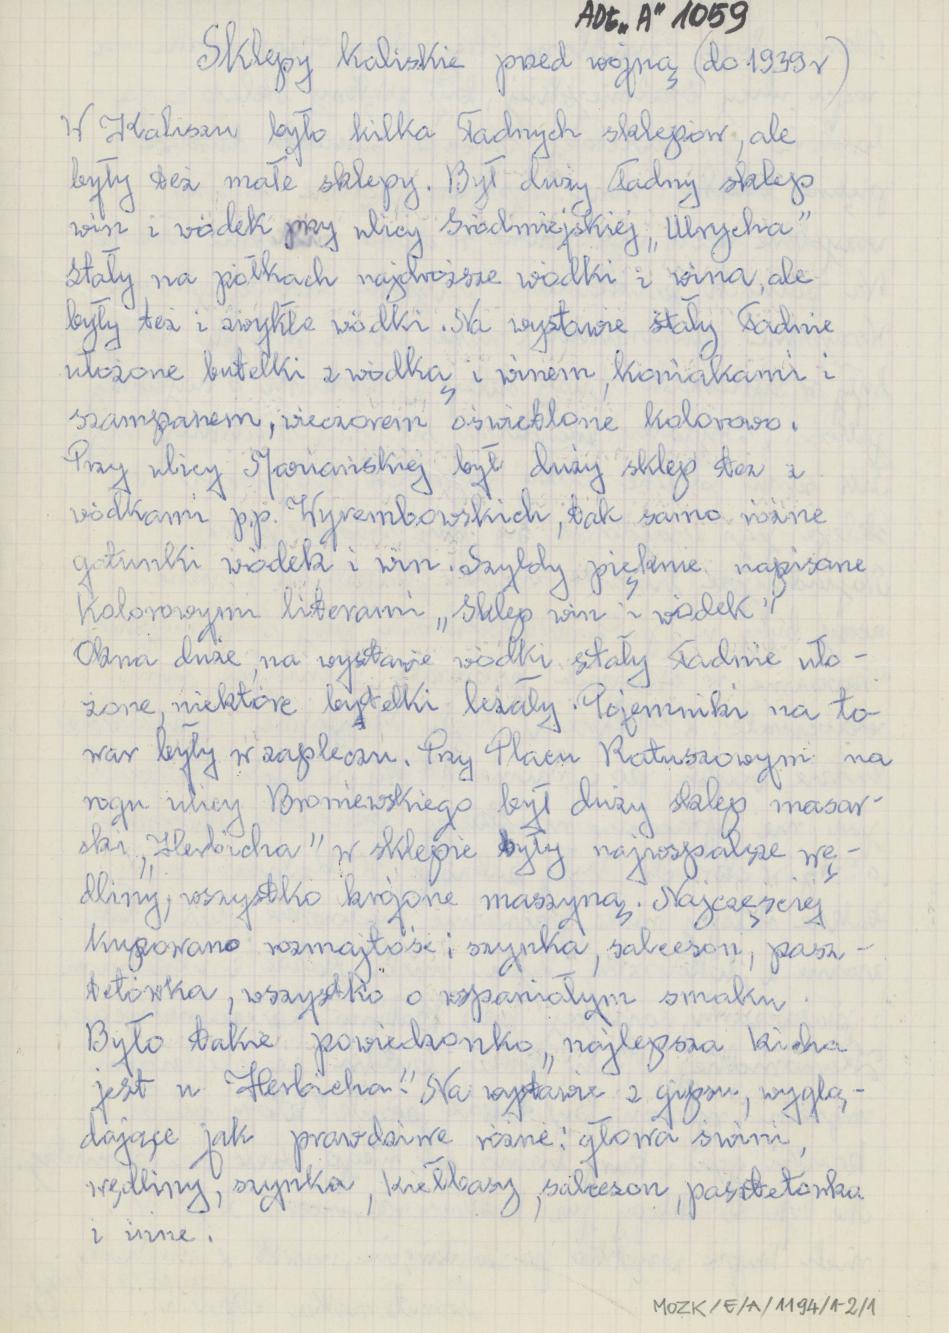 ADt. "A" 1059
Sklepy kaliskie przed wojną (do 1939 r)
W Kaliszu było kilka ładnych sklepów, ale
były też małe sklepy. Był duży ładny sklep
win i wódek przy ulicy Śródmiejskiej „Ulrycha”
stały na półkach najdroższe wódki i wina, ale
były też i zwykłe wódki. Na wystawie stały ładnie
ułożone butelki z wódką i winem, koniakami i
szampanem, wieczorem oświetlone kolorowo.
Przy ulicy Mariańskiej był duży sklep też z
wódkami p.p. Wyrembowskich, tak samo różne
gatunki wódek i win. Szyldy pięknie napisane
kolorowymi literami „Sklep win i wódek”
Okna duże, na wystawie wódki stały ładnie uło-
żone, niektóre butelki leżały. Pojemniki na to-
war były w zapleczu. Przy Placu Ratuszowym na
rogu ulicy Broniewskiego był duży sklep masar-
ski „Herbicha” w sklepie były najwspalsze wę-
dliny, wszystko krojone maszyną. Najczęściej
kupowano rozmajtość i szynka, salceson, pasz-
tetówka, wszystko o wspaniałym smaku.
Było takie powiedzonko „najlepsza kicha
jest u Herbicha!” Na wystawie z gipsu, wyglą-
dające jak prawdziwe różne: głowa świni,
wędliny, szynka, kiełbasy, salceson, pasztetówka
i inne.
MOZK/E/A/1194/1-2/1